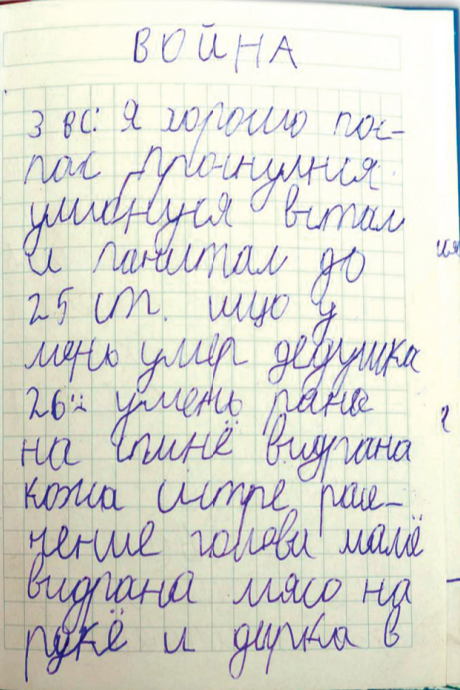 ВОЙНА
3 вс: Я хорошо пос-
пал проснулися
улибнуся встал
и пачитал до
25 ст. ищо у
мень умер дедушка
26: у мень рана
на спинё видрана
кожа систре рас-
чение голови мамё
видрана мясо на
рукё и дирка в